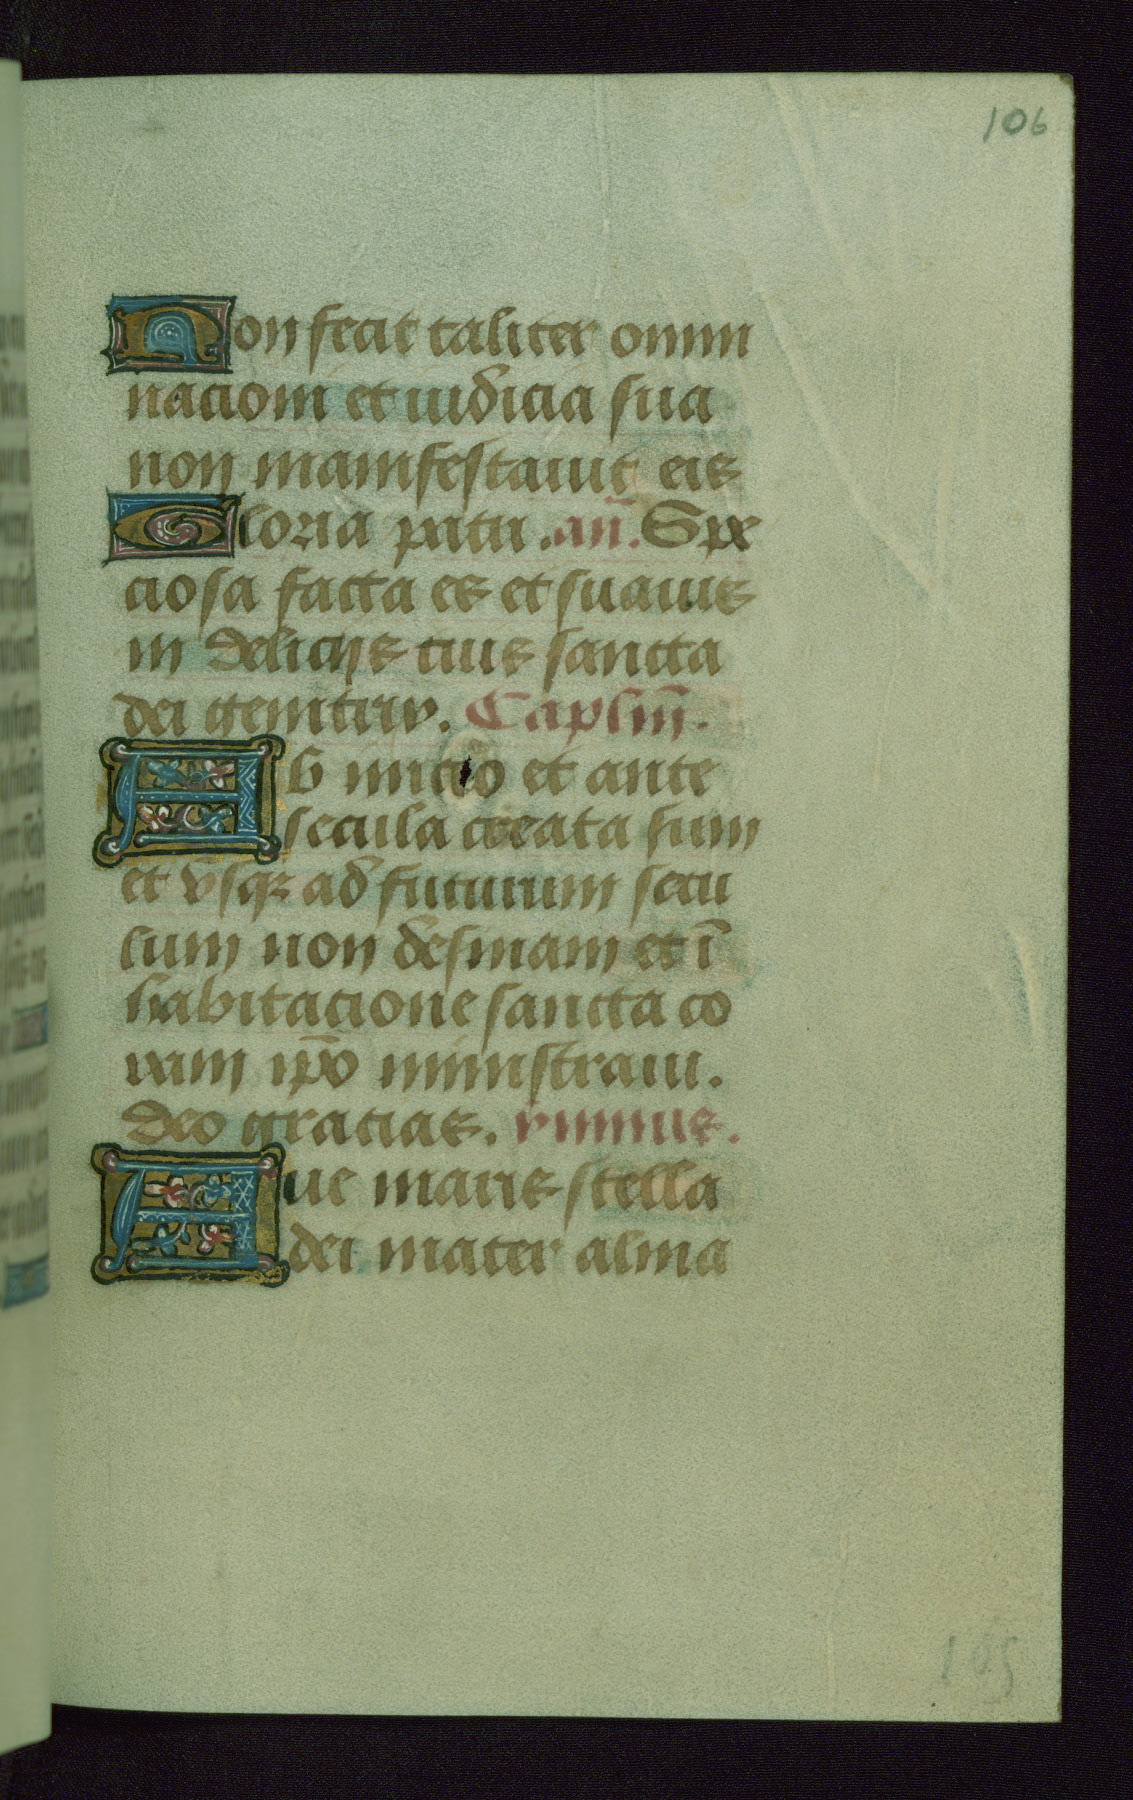 106
Non fecit taliter omni
nacioni et iudicia sua
non manifestauit eis
Gloria patri . añ. Spe
ciosa facta es et suauis
in delicijs tuis sancta
dei genitrix. Caplm̄.
AB inicio et ante
secula creata sum
et vsqꝫ ad futurum secu
lum non desinam et ī
habitacione sancta co
ram ip̄o ministraui.
Deo gracias. ymnus.
Aue maris stella
dei mater alma
105